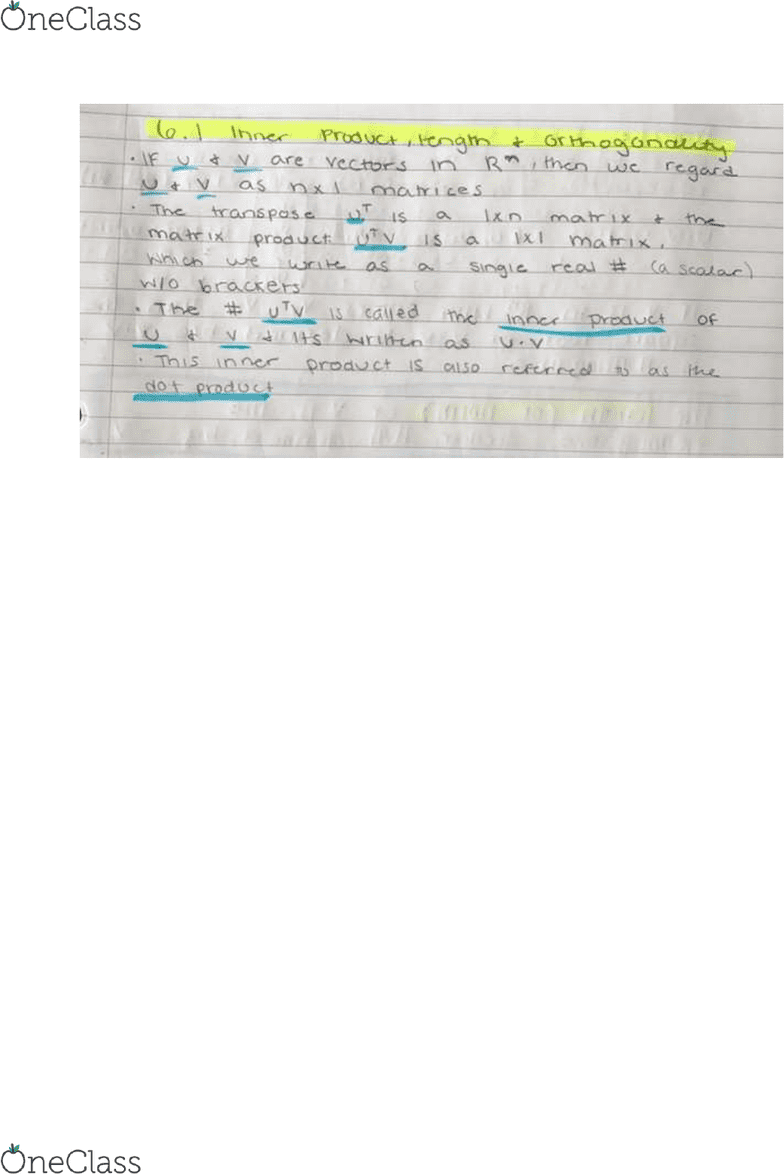 OneClass
6.1 Inner Product, Length + Orthogonality
• IF u + v are vectors in Rⁿ, then we regard
u + v as nx1 matrices
• The transpose uᵀ is a 1xn matrix + the
matrix product uᵀv is a 1x1 matrix,
which we write as a single real # (a scalar)
w/o brackets
• The # uᵀv is called the inner product of
u + v + its written as u·v
• This inner product is also referred to as the
dot product
OneClass